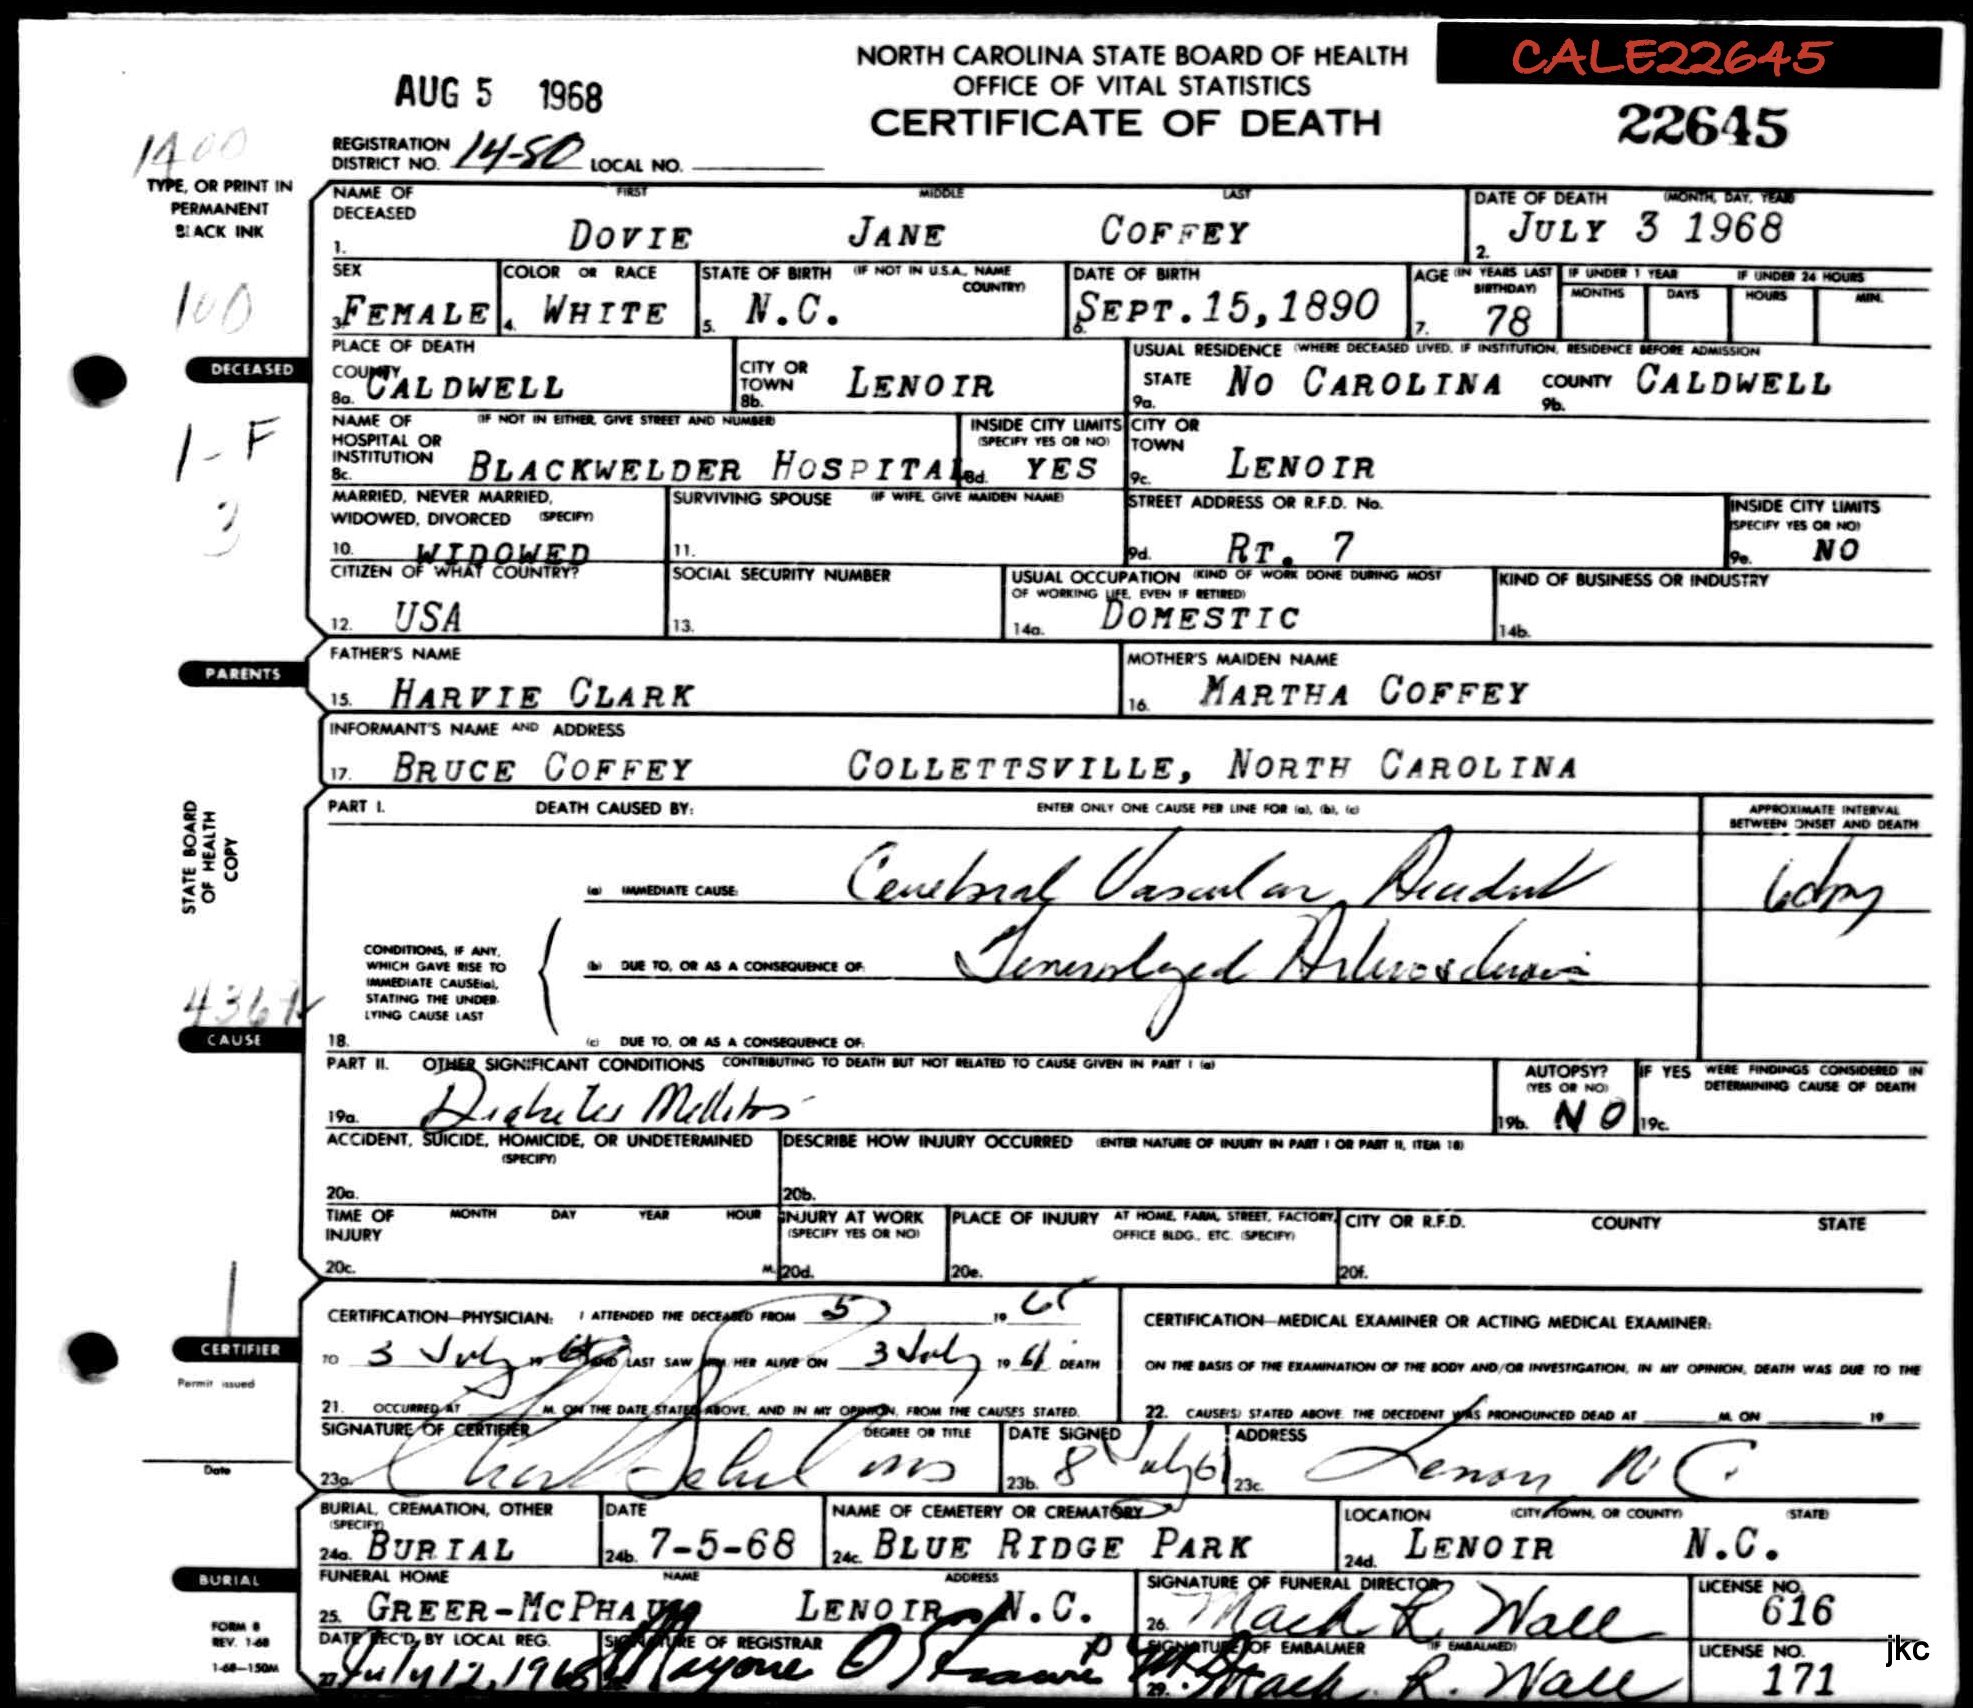 CALE22645
NORTH CAROLINA STATE BOARD OF HEALTH
OFFICE OF VITAL STATISTICS
CERTIFICATE OF DEATH
22645
AUG 5 1968
REGISTRATION DISTRICT NO. 14-80 LOCAL NO.
1400
TYPE, OR PRINT IN
PERMANENT
BLACK INK
100
DECEASED
1-F
3
NAME OF DECEASED FIRST MIDDLE LAST
1. DOVIE JANE COFFEY
DATE OF DEATH (MONTH, DAY, YEAR)
2. JULY 3 1968
SEX
3. FEMALE
COLOR OR RACE
4. WHITE
STATE OF BIRTH (IF NOT IN U.S.A., NAME COUNTRY)
5. N.C.
DATE OF BIRTH
6. SEPT.15,1890
AGE (IN YEARS LAST BIRTHDAY)
7. 78
IF UNDER 1 YEAR
MONTHS DAYS
IF UNDER 24 HOURS
HOURS MIN.
PLACE OF DEATH
COUNTY
8a. CALDWELL
CITY OR TOWN
8b. LENOIR
USUAL RESIDENCE (WHERE DECEASED LIVED. IF INSTITUTION, RESIDENCE BEFORE ADMISSION
STATE
9a. NO CAROLINA
COUNTY
9b. CALDWELL
NAME OF HOSPITAL OR INSTITUTION (IF NOT IN EITHER, GIVE STREET AND NUMBER)
8c. BLACKWELDER HOSPITAL
INSIDE CITY LIMITS (SPECIFY YES OR NO)
8d. YES
CITY OR TOWN
9c. LENOIR
MARRIED, NEVER MARRIED,
WIDOWED, DIVORCED (SPECIFY)
10. WIDOWED
SURVIVING SPOUSE (IF WIFE, GIVE MAIDEN NAME)
11.
STREET ADDRESS OR R.F.D. No.
9d. RT. 7
INSIDE CITY LIMITS (SPECIFY YES OR NO)
9e. NO
CITIZEN OF WHAT COUNTRY?
12. USA
SOCIAL SECURITY NUMBER
13.
USUAL OCCUPATION (KIND OF WORK DONE DURING MOST OF WORKING LIFE, EVEN IF RETIRED)
14a. DOMESTIC
KIND OF BUSINESS OR INDUSTRY
14b.
PARENTS
FATHER'S NAME
15. HARVIE CLARK
MOTHER'S MAIDEN NAME
16. MARTHA COFFEY
INFORMANT'S NAME AND ADDRESS
17. BRUCE COFFEY COLLETTSVILLE, NORTH CAROLINA
STATE BOARD
OF HEALTH
COPY
PART I. DEATH CAUSED BY: ENTER ONLY ONE CAUSE PER LINE FOR (a), (b), (c)
APPROXIMATE INTERVAL
BETWEEN ONSET AND DEATH
(a) IMMEDIATE CAUSE: Cerebral Vascular Accident
CONDITIONS, IF ANY,
WHICH GAVE RISE TO
IMMEDIATE CAUSE(a),
STATING THE UNDER-
LYING CAUSE LAST
(b) DUE TO, OR AS A CONSEQUENCE OF: Generalyzed Arteriosclerosis
18. (c) DUE TO, OR AS A CONSEQUENCE OF:
CAUSE
PART II. OTHER SIGNIFICANT CONDITIONS CONTRIBUTING TO DEATH BUT NOT RELATED TO CAUSE GIVEN IN PART I (a)
19a. Diabetes Mellitus
AUTOPSY? (YES OR NO)
19b. NO
IF YES WERE FINDINGS CONSIDERED IN DETERMINING CAUSE OF DEATH
19c.
ACCIDENT, SUICIDE, HOMICIDE, OR UNDETERMINED (SPECIFY)
20a.
DESCRIBE HOW INJURY OCCURRED (ENTER NATURE OF INJURY IN PART I OR PART II, ITEM 18)
20b.
TIME OF INJURY MONTH DAY YEAR HOUR
20c. M.
INJURY AT WORK (SPECIFY YES OR NO)
20d.
PLACE OF INJURY AT HOME, FARM, STREET, FACTORY, OFFICE BLDG., ETC. (SPECIFY)
20e.
CITY OR R.F.D. COUNTY STATE
20f.
CERTIFIER
Permit issued
Date
CERTIFICATION—PHYSICIAN: I ATTENDED THE DECEASED FROM 19
TO 3 July 19 AND LAST SAW HIM/HER ALIVE ON 3 July 19 DEATH
21. OCCURRED AT M. ON THE DATE STATED ABOVE, AND IN MY OPINION, FROM THE CAUSES STATED.
CERTIFICATION—MEDICAL EXAMINER OR ACTING MEDICAL EXAMINER:
ON THE BASIS OF THE EXAMINATION OF THE BODY AND/OR INVESTIGATION, IN MY OPINION, DEATH WAS DUE TO THE
22. CAUSE(S) STATED ABOVE. THE DECEDENT WAS PRONOUNCED DEAD AT M. ON 19
SIGNATURE OF CERTIFIER DEGREE OR TITLE
23a.
DATE SIGNED
23b. 8 July
ADDRESS
23c. Lenoir N C
BURIAL
BURIAL, CREMATION, OTHER (SPECIFY)
24a. BURIAL
DATE
24b. 7-5-68
NAME OF CEMETERY OR CREMATORY
24c. BLUE RIDGE PARK
LOCATION (CITY, TOWN, OR COUNTY) (STATE)
24d. LENOIR N.C.
FUNERAL HOME NAME ADDRESS
25. GREER-MCPHAUL LENOIR, N.C.
SIGNATURE OF FUNERAL DIRECTOR
26. Mack R. Wall
LICENSE NO.
616
FORM 8
REV. 1-68
1-68—150M
DATE REC'D. BY LOCAL REG.
27. July 12, 1968
SIGNATURE OF REGISTRAR
SIGNATURE OF EMBALMER (IF EMBALMED)
29. Mack R. Wall
LICENSE NO.
171
jkc